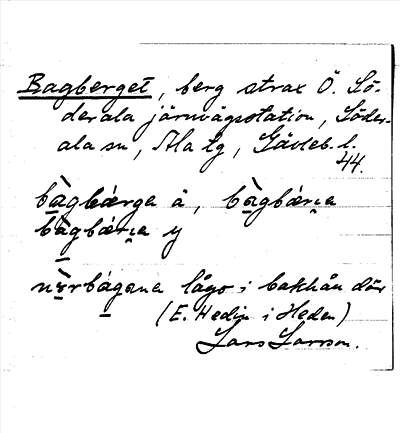 Bagberget, berg strax Ö. Sö-
derala järnvägsstation, Söder-
ala sn, Ala tg, Gävleb. l.
44.
bàgbǽrga ä, bàgbǽrɩ̨a
bàgbǽrɩ̨a y
lågo i bakhån där
(E. Hedin i Heden)
Lars Larsson.